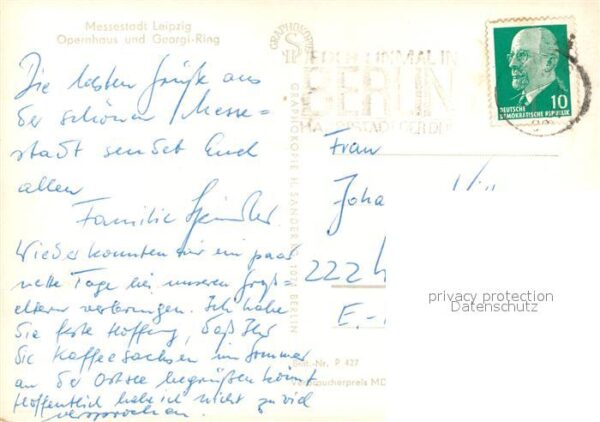 Messestadt Leipzig
Opernhaus und Georgi-Ring
Die besten Grüße aus
der schönen Messe=
stadt sendet Euch
allen
Familie
Wieder konnten wir ein paar
nette Tage bei unseren Groß=
eltern verbringen. Ich habe
die feste Hoffnung, daß Ihr
die Kaffeesachsen im Sommer
an der Ostsee begrüßen könnt
Hoffentlich habe ich nicht zu viel
versprochen.
GRAPHOKOPIE
EINMAL IN
BERLIN
HAUPTSTADT DER DDR
DEUTSCHE
DEMOKRATISCHE REPUBLIK
10
GRAPHOKOPIE H. SANDER KG, 1071 BERLIN
Frau
Joha
222
E.-
privacy protection
Datenschutz
Best.-Nr. P 427
Verbraucherpreis MD